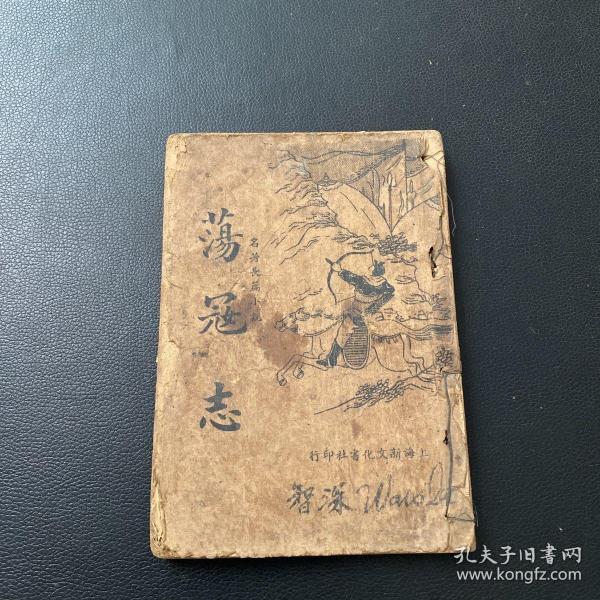 蕩寇志
名著長篇小說
上海新文化書社印行
智深
孔夫子旧書网
www.kongfz.com